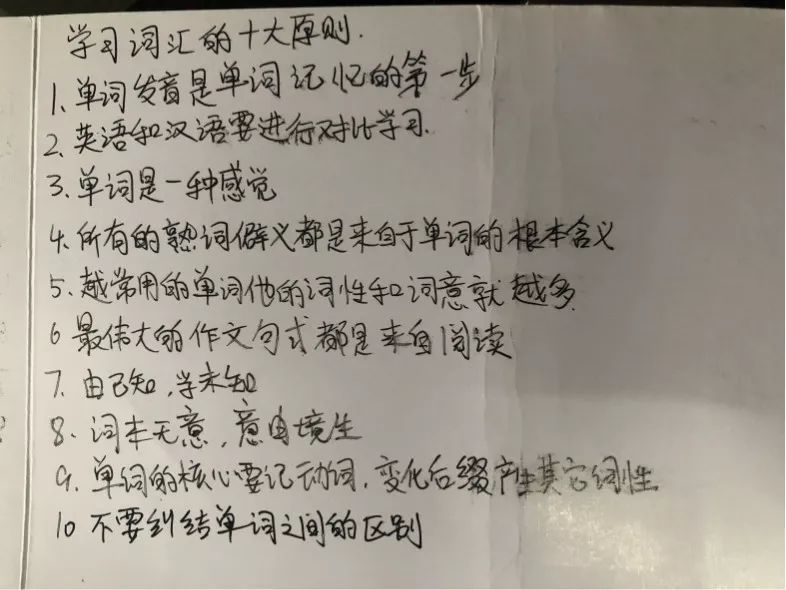 学习词汇的十大原则.
1. 单词发音是单词记忆的第一步
2. 英语和汉语要进行对比学习.
3. 单词是一种感觉
4. 所有的熟词僻义都是来自于单词的根本含义
5. 越常用的单词他的词性和词意就越多.
6 最伟大的作文句式都是来自阅读
7. 由已知,学未知
8. 词本无意,意由境生
9. 单词的核心要记动词,变化后缀产生其它词性.
10 不要纠结单词之间的区别